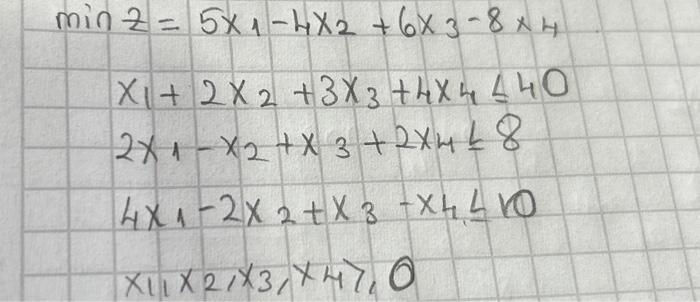 min Z = 5x1 - 4x2 + 6x3 - 8x4
x1 + 2x2 + 3x3 + 4x4 ≤ 40
2x1 - x2 + x3 + 2x4 ≤ 8
4x1 - 2x2 + x3 - x4 ≤ 10
x1, x2, x3, x4 ≥ 0